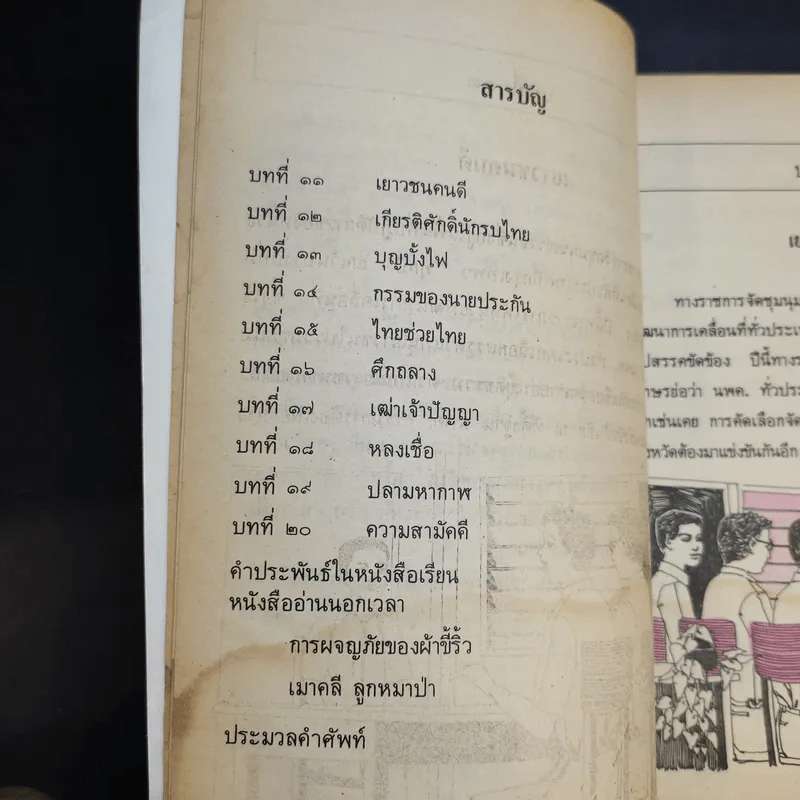 สารบัญ
บทที่ ๑๑ เยาวชนคนดี
บทที่ ๑๒ เกียรติศักดิ์นักรบไทย
บทที่ ๑๓ บุญบั้งไฟ
บทที่ ๑๔ กรรมของนายประกัน
บทที่ ๑๕ ไทยช่วยไทย
บทที่ ๑๖ ศึกถลาง
บทที่ ๑๗ เฒ่าเจ้าปัญญา
บทที่ ๑๘ หลงเชื่อ
บทที่ ๑๙ ปลามหากาฬ
บทที่ ๒๐ ความสามัคคี
คำประพันธ์ในหนังสือเรียน
หนังสืออ่านนอกเวลา
การผจญภัยของผ้าขี้ริ้ว
เมาคลี ลูกหมาป่า
ประมวลคำศัพท์
ทางราชการจัดชุมนุม
ฒนาการเคลื่อนที่ทั่วประเท
ปสรรคขัดข้อง ปีนี้ทางร
กษรย่อว่า นพค. ทั่วประ
าเช่นเคย การคัดเลือกจัด
งหวัดต้องมาแข่งขันกันอีก